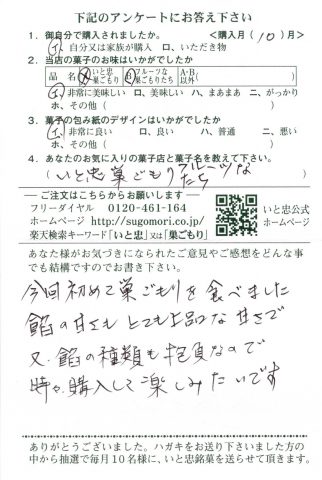 下記のアンケートにお答え下さい
1. 御自分で購入されましたか。 <購入月(10)月>
イ、自分又は家族が購入 ロ、いただき物
2. 当店の菓子のお味はいかがでしたか
品 名 A いと忠巣ごもり B フルーツな巣ごもりたち A・B以外( )
イ、非常に美味しい ロ、美味しい ハ、まあまあ ニ、がっかり
ホ、その他( )
3. 菓子の包み紙のデザインはいかがでしたか
イ、非常に良い ロ、良い ハ、普通 ニ、悪い
ホ、その他( )
4. あなたのお気に入りの菓子店と菓子名を教えて下さい。
(いと忠 巣ごもり フルーツなたち)
ご注文はこちらからお願いします
フリーダイヤル 0120-461-164
ホームページ http://sugomori.co.jp/
楽天検索キーワード「いと忠」又は「巣ごもり」
いと忠公式
ホームページ
あなた様がお気づきになられたご意見やご感想をどんな事
でも結構ですのでお書き下さい。
今回初めて巣ごもりを食べました
餡の甘さも とても上品な甘さで
又、餡の種類も抱負なので
時々購入して楽しみたいです
ありがとうございました。ハガキをお送り下さいました方の
中から抽選で毎月10名様に、いと忠銘菓を送らせて頂きます。